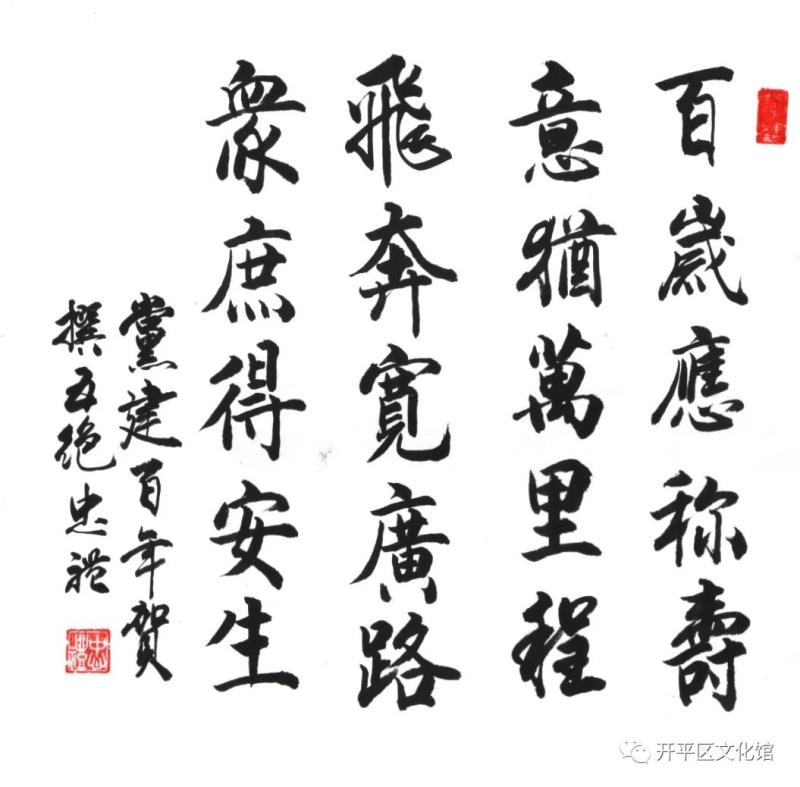 百歲應称壽
意猶萬里程
飛奔寬廣路
衆庶得安生
黨建百年賀
撰五絶忠禮
忠禮
开平区文化馆